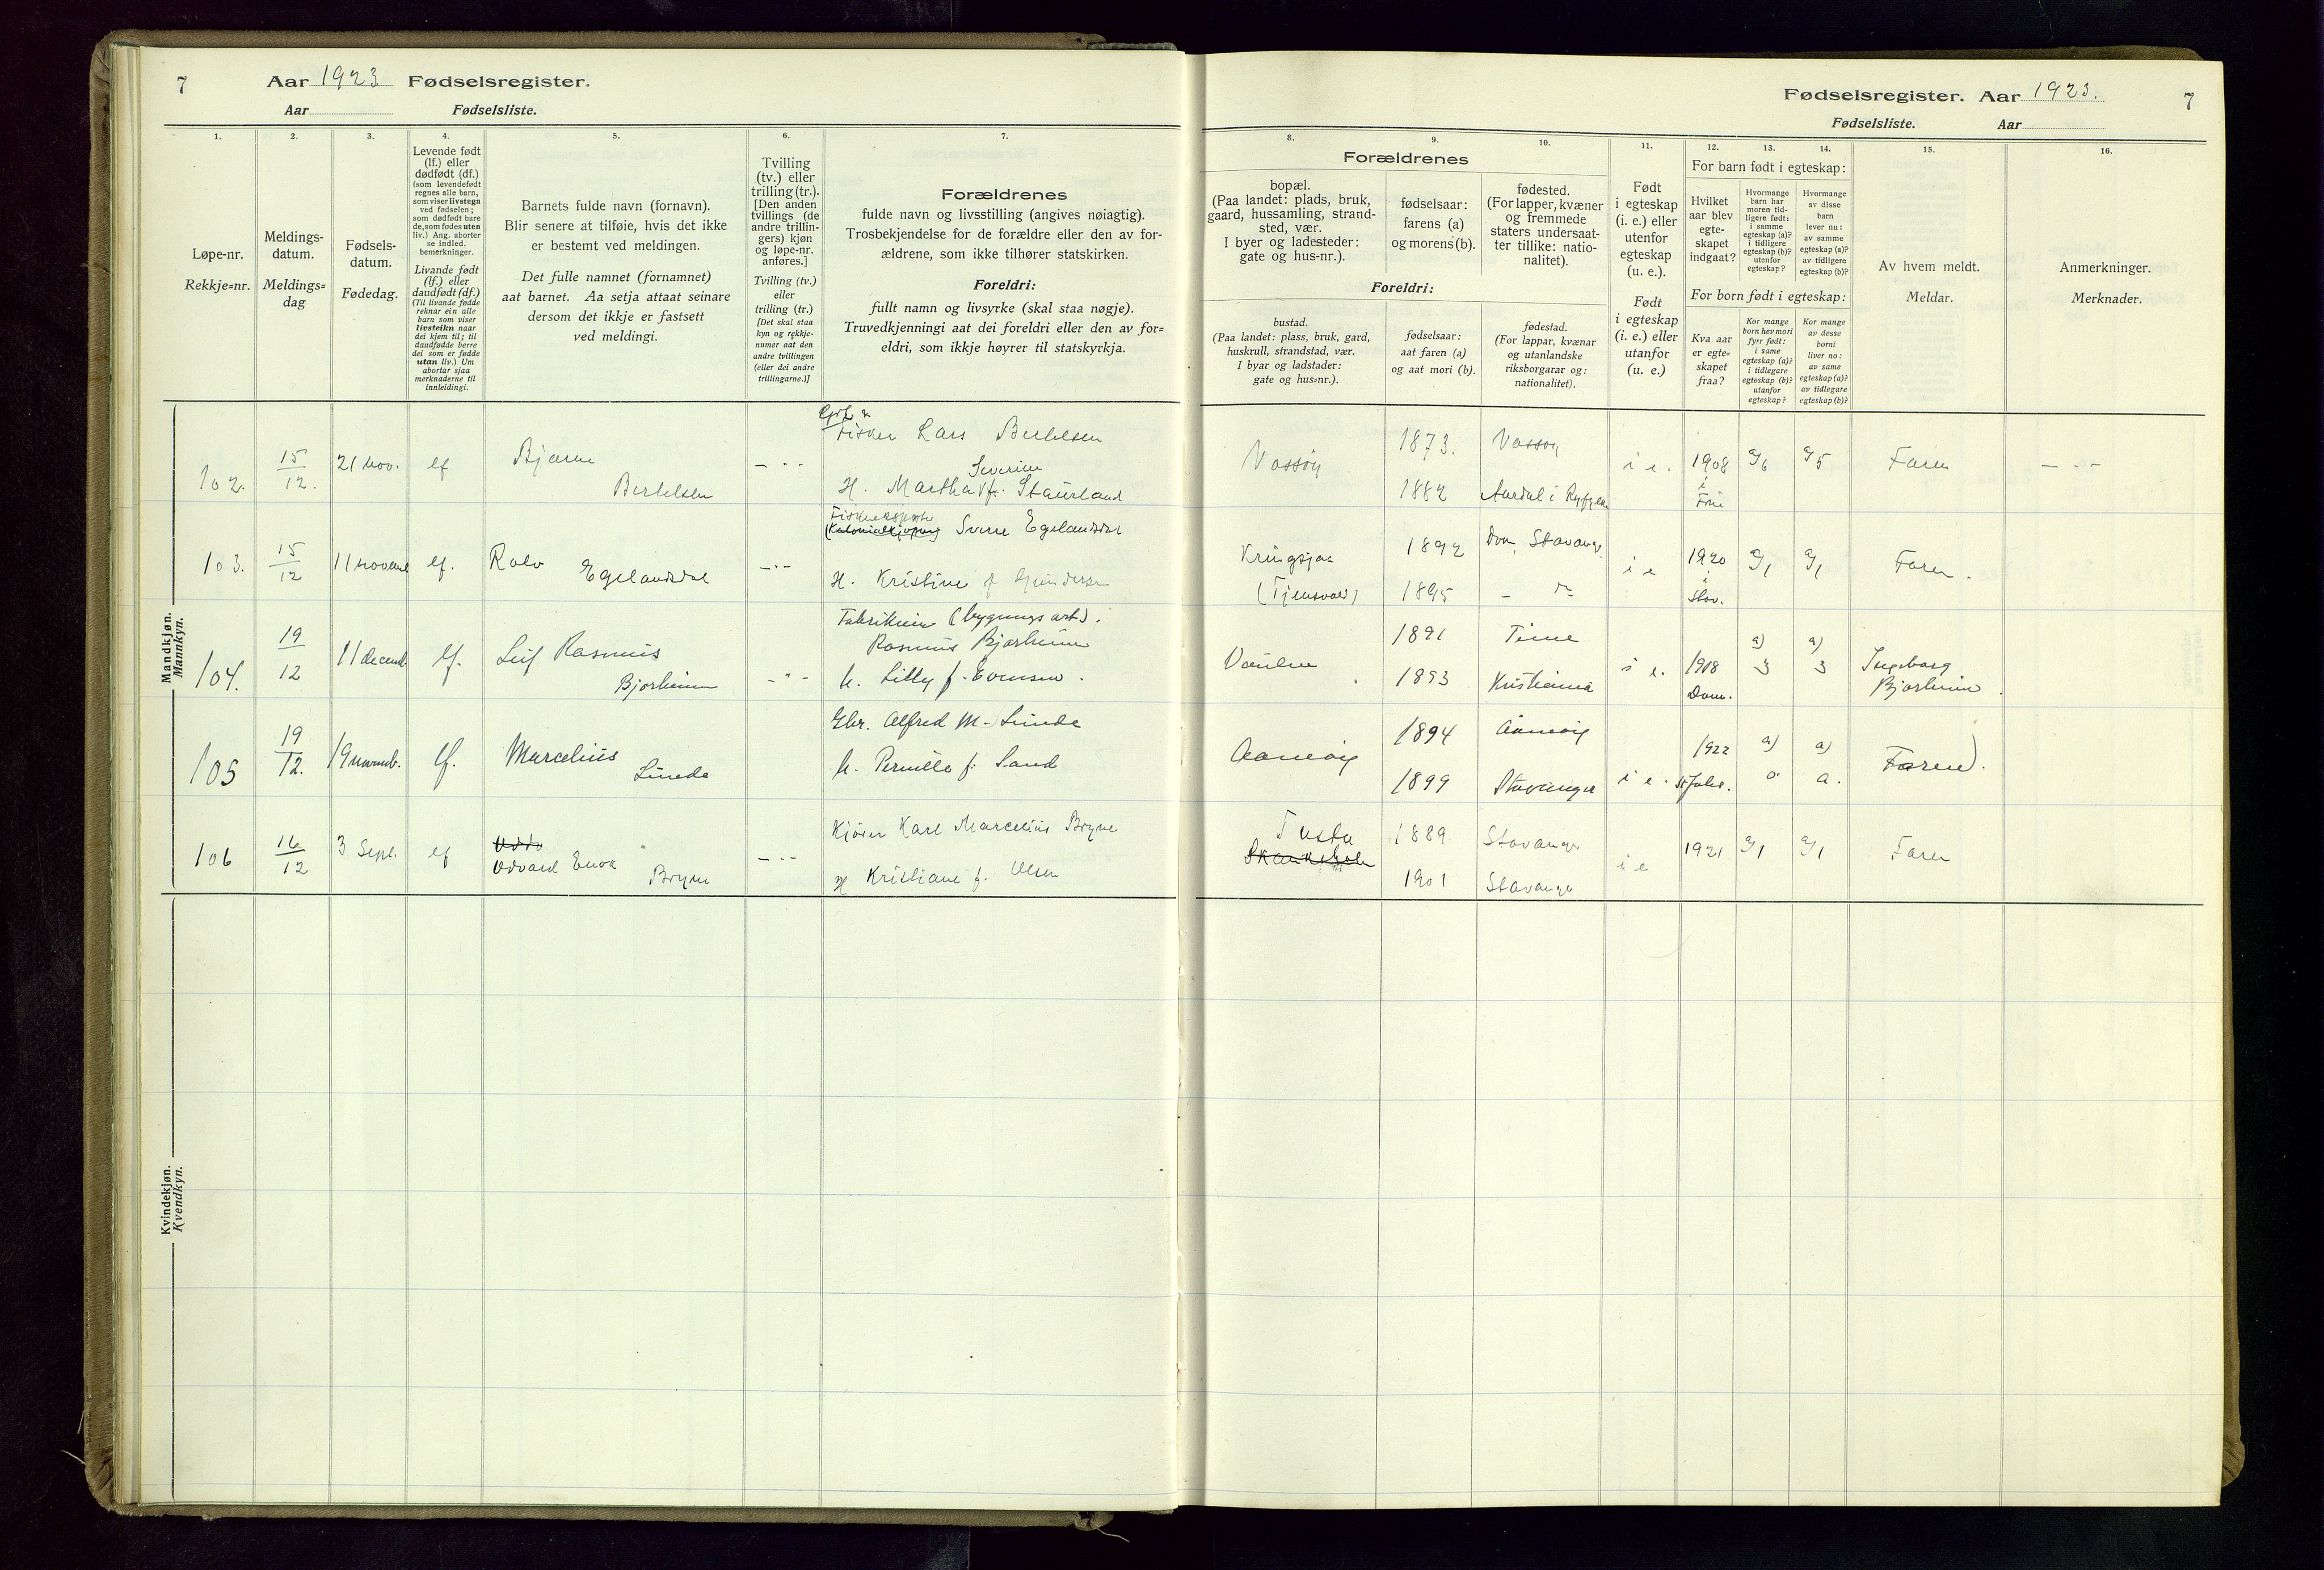 7 Aar 1923 Fødselsregister.
Aar Fødselsliste.
1. 2. 3. 4. 5. 6. 7.
Løpe-nr.
Rekkje=nr.
Meldings-
datum.
Meldings=
dag
Fødsels-
datum.
Fødedag.
Levende født
(lf.) eller
dødfødt (df.)
(som levendefødt
regnes alle barn,
som viser livstegn
ved fødselen;
som dødfødt bare
de, som fødes uten
liv.) Ang. aborter
se indled.
bemerkninger.
Livande født
(lf.) eller
daudfødt (df.)
(Til livande fødde
reknar ein alle
barn som viser
livsteikn naar
dei kjem til; til
daudfødde berre
dei som er fødde
utan liv.) Um
abortar sjaa
merknaderne til
innleidingi.
Barnets fulde navn (fornavn).
Blir senere at tilføie, hvis det ikke
er bestemt ved meldingen.
Det fulle namnet (fornamnet)
aat barnet. Aa setja attaat seinare
dersom det ikkje er fastsett
ved meldingi.
Tvilling
(tv.) eller
trilling (tr.).
[Den anden
tvillings (de
andre trillin-
gers) kjøn
og løpe-nr.
anføres.]
Tvilling (tv.)
eller
trilling (tr.)
[Det skal staa
kyn og rekkje-
numer aat den
andre tvillingen
(eller dei andre
trillingarne.)]
Forældrenes
fulde navn og livsstilling (angives nøiagtig).
Trosbekjendelse for de forældre eller den av for-
ældrene, som ikke tilhører statskirken.
Foreldri:
fullt namn og livsyrke (skal staa nøgje).
Truvedkjenningi aat dei foreldri eller den av for=
eldri, som ikkje høyrer til statskyrkja.
Mandkjøn.
Mannkyn.
102. 15/12. 21 nov. lf Bjarne Bertelsen — " —
Fisker Lars Bertelsen
H. Martha Severine f. Staurland
103. 15/12 11 novem lf. Rolv Egelandsdal — " —
Sverre Egelandsdal
H. Kristine f. Gundersen
104. 19/12 11 decemb. lf. Leif Rasmus Bjorheim — " —
Fabrikeier (bygningsart).
Rasmus Bjorheim
h. Lilly f. Evensen.
105 19/12. 19 novemb. lf. Marcelius Lunde
Gbr. Alfred M. Lunde
h. Pernille f. Sand
106 16/12 3 Sept. lf Odvard Enok Bryne — " —
Kjører Karl Marcelius Bryne
H Kristiane f. Olsen
Kvindekjøn.
Kvendkyn.
Fødselsregister. Aar 1923. 7
Fødselsliste. Aar
8. 9. 10. 11. 12. 13. 14. 15. 16.
Forældrenes
bopæl.
(Paa landet: plads, bruk,
gaard, hussamling, strand-
sted, vær.
I byer og ladesteder:
gate og hus-nr.).
fødselsaar:
farens (a)
og morens (b).
fødested.
(For lapper, kvæner
og fremmede
staters undersaat-
ter tillike: natio-
nalitet).
Foreldri:
bustad.
(Paa landet: plass, bruk, gard,
huskrull, strandstad, vær.
I byar og ladstader:
gate og hus=nr.).
fødselsaar:
aat faren (a)
og aat mori (b).
fødestad.
(For lappar, kvænar
og utanlandske
riksborgarar og:
nationalitet).
Født
i egteskap
(i. e.) eller
utenfor
egteskap
(u. e.).
Født
i egteskap
(i. e.) eller
utanfor
(u. e.)
For barn født i egteskap:
Hvilket
aar blev
egte-
skapet
indgaat?
Hvormange
barn har
moren tid-
ligere født:
i samme
egteskap (a)?
i tidligere
egteskap (b)?
utenfor
egteskap?
Hvormange
av disse
barn
lever nu:
av samme
egteskap (a)?
av tidligere
egteskap (b)?
For born født i egteskap:
Kva aar
er egte=
skapet
fraa?
Kor mange
born hev mori
fyrr født:
i same
egteskap (a)?
i tidlegare
egteskap (b)?
utanfor
egteskap?
Kor mange
av desse
borni
liver no:
av same
egteskap (a)?
av tidlegare
egteskap (b)?
Av hvem meldt.
Meldar.
Anmerkninger.
Merknader.
Vassøy 1873. Vassøy
1882 Aardal i Ryfylke
i e. 1908 i Frue a/6 a/5 Faren — " —
Kringsjaa (Tjensvold) 1892 Dom, Stavanger
1895 — " —
i e 1920 i Stav. a/1 a/1 Faren.
Vaulen 1891 Time
1893 Kristiania
i e. 1918 Dom. a) 3 a) 3 Ingeborg Bjorheim.
Aamøy 1894 Aamøy
1899 Stavanger
i e. 1922 St. Joh. a) o a) Faren.
Tasta 1889 Stavanger
1901 Stavanger
i e 1921 a/1 a/1 Faren